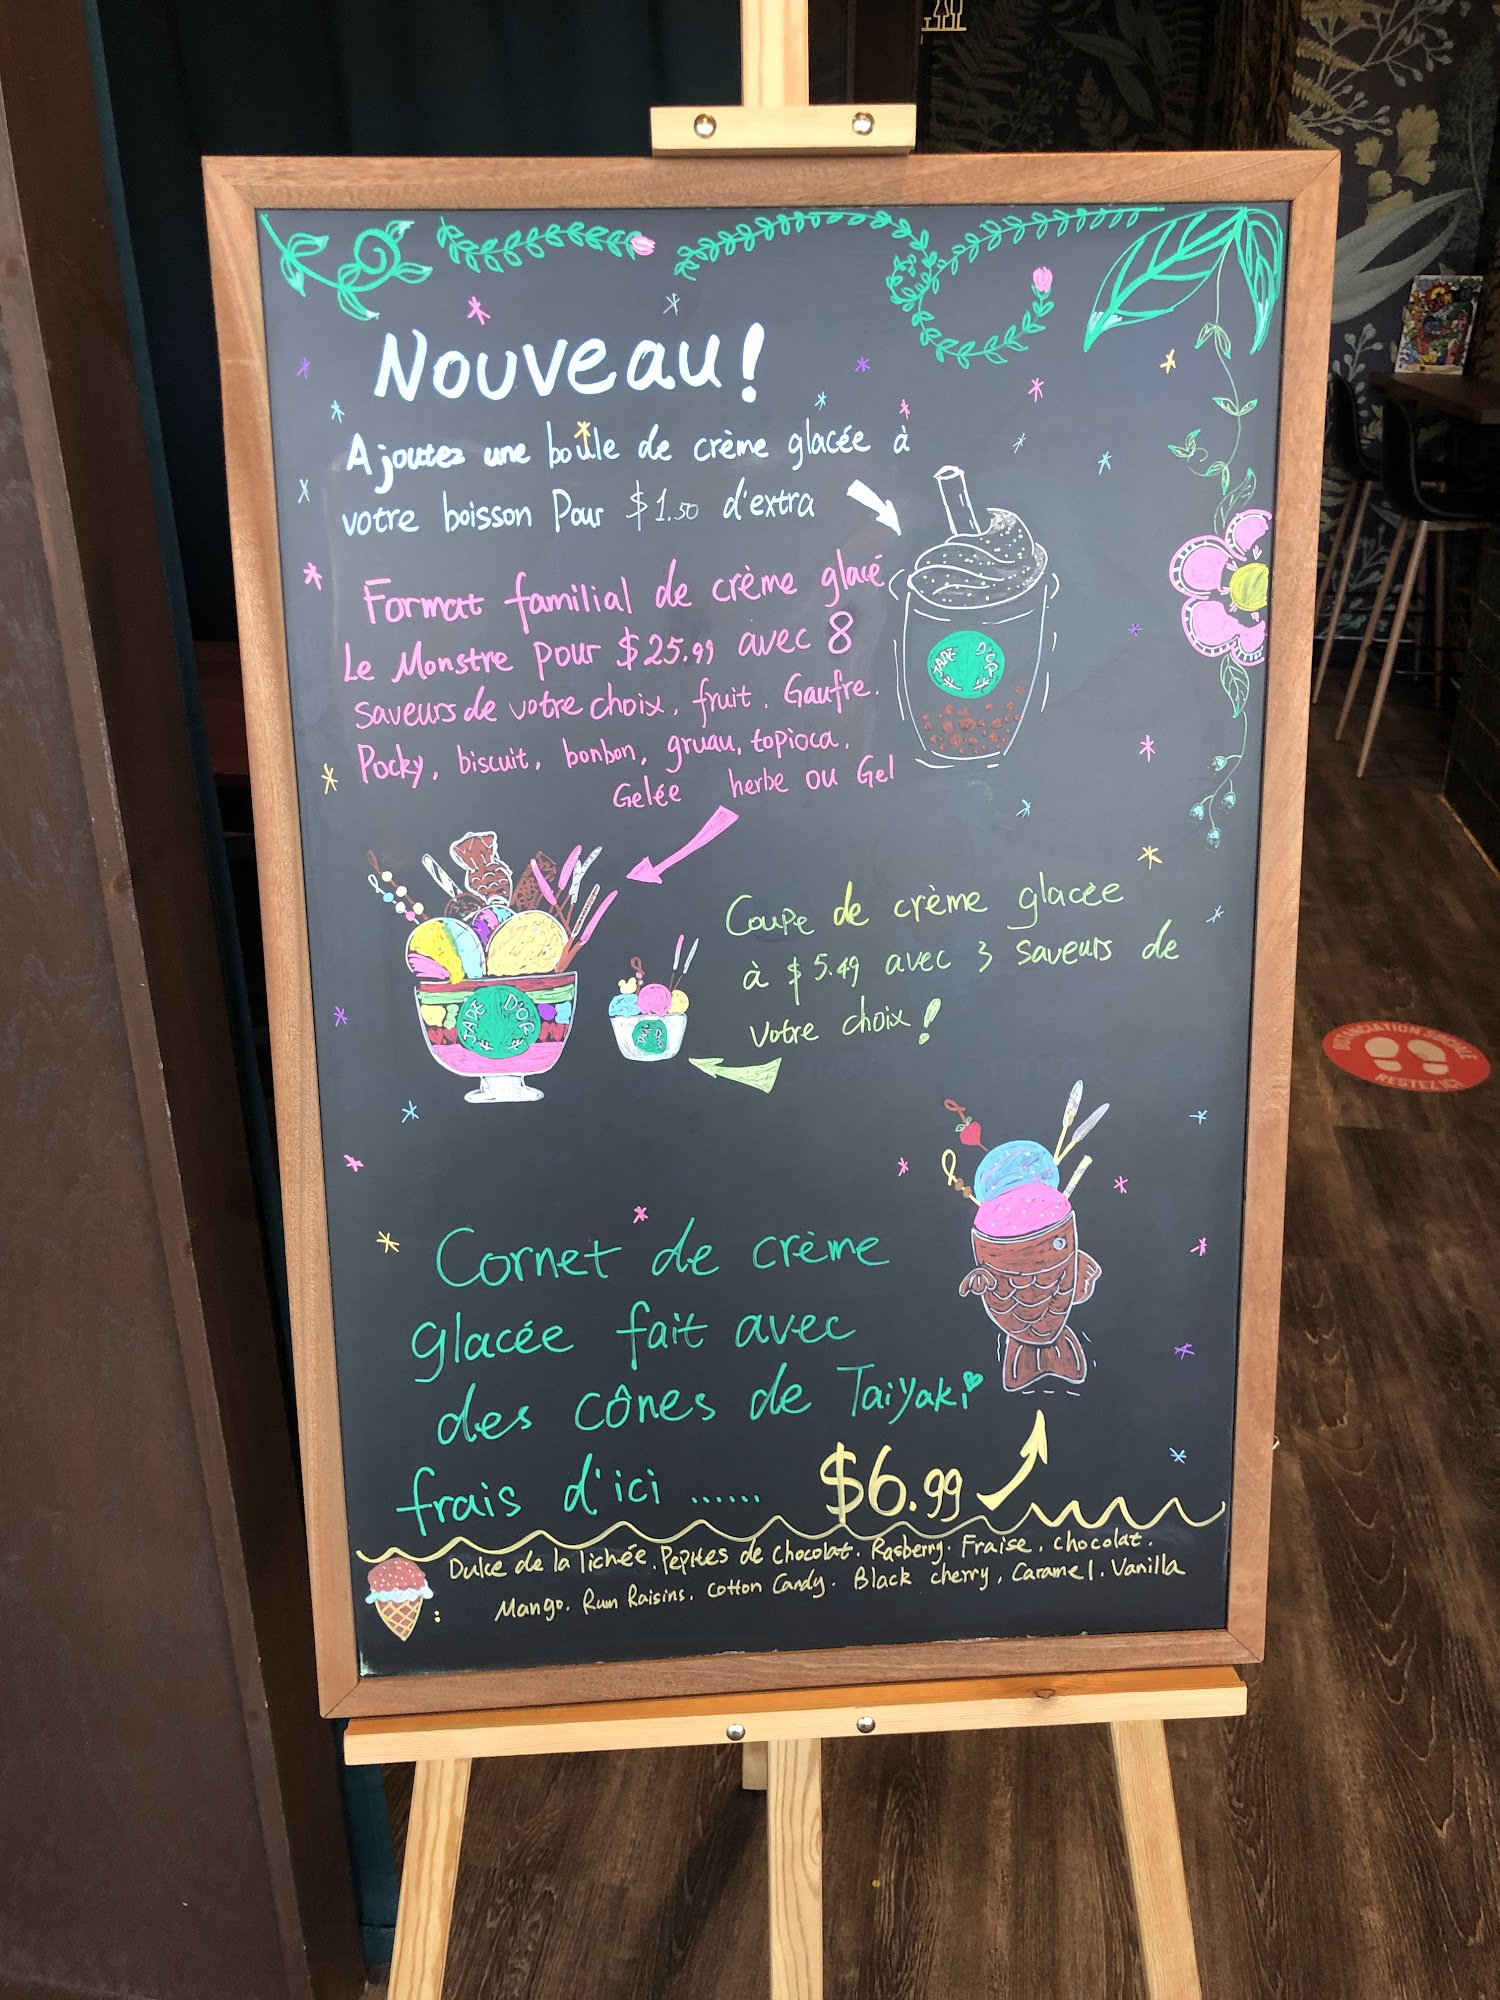 Nouveau!
Ajoutez une boule de crème glacée à
votre boisson Pour $1.50 d'extra
Format familial de crème glacé
Le Monstre pour $25.99 avec 8
saveurs de votre choix, fruit, Gaufre.
Pocky, biscuit, bonbon, gruau, topioca.
Gelée herbe ou Gel
JADE D'OR
JADE D'OR
JADE D'OR
Coupe de crème glacée
à $5.49 avec 3 saveurs de
votre choix!
Cornet de crème
glacée fait avec
des cônes de Taiyaki
frais d'ici ......
$6.99
Dulce de la lichée. Pepites de Chocolat. Rasberry. Fraise. chocolat.
Mango. Rum Raisins. Cotton Candy. Black cherry, Caramel. Vanilla
RESTEZ ICI